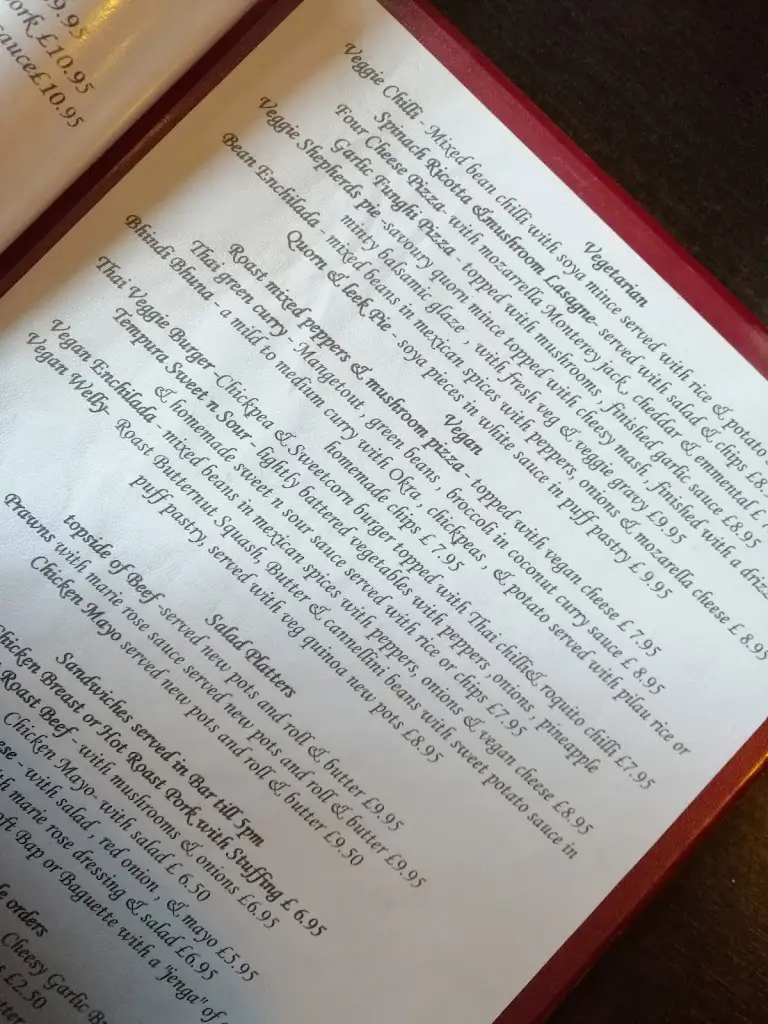 9.95
£10.95
sauce£10.95
Vegetarian
Veggie Chilli - Mixed bean chilli with soya mince served with rice & potato
Spinach Ricotta &mushroom Lasagne- served with salad & chips £8.
Four Cheese Pizza- with mozarrella Monterey jack, cheddar & emmental £
Garlic Funghi Pizza - topped with mushrooms , finished garlic sauce £8.95
Veggie Shepherds pie -savoury quorn mince topped with cheesy mash , finished with a drizz
minty balsamic glaze , with fresh veg & veggie gravy £9.95
Bean Enchilada - mixed beans in mexican spices with peppers, onions & mozarella cheese £ 8.95
Quorn & leek Pie - soya pieces in white sauce in puff pastry £ 9.95
Vegan
Roast mixed peppers & mushroom pizza - topped with vegan cheese £ 7.95
Thai green curry -Mangetout, green beans , broccoli in coconut curry sauce £ 8.95
Bhindi Bhuna - a mild to medium curry with Okra , chickpeas , & potato served with pilau rice or
homemade chips £ 7.95
Thai Veggie Burger-Chickpea & Sweetcorn burger topped with Thai chilli& roquito chilli £7.95
Tempura Sweet n Sour - lightly battered vegetables with peppers ,onions , pineapple
& homemade sweet n sour sauce served with rice or chips £7.95
Vegan Enchilada - mixed beans in mexican spices with peppers, onions & vegan cheese £8.95
Vegan Welly- Roast Butternut Squash, Butter & cannellini beans with sweet potato sauce in
puff pastry, served with veg quinoa new pots £8.95
Salad Platters
topside of Beef -served new pots and roll & butter £9.95
Prawns with marie rose sauce served new pots and roll & butter £9.95
Chicken Mayo served new pots and roll & butter £9.50
Sandwiches served in Bar till 5pm
Chicken Breast or Hot Roast Pork with Stuffing £ 6.95
Roast Beef - with mushrooms & onions £6.95
Chicken Mayo- with salad £ 6.50
- with salad , red onion , & mayo £5.95
marie rose dressing & salad £6.95
Bap or Baguette with a "jenga" of
orders
Cheesy Garlic
£2.50